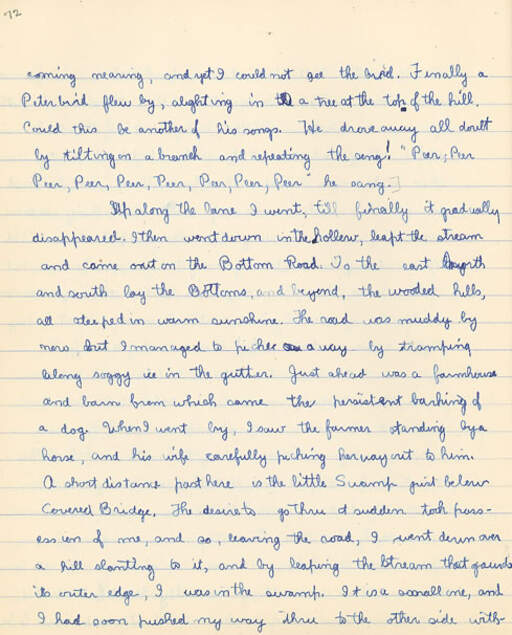 72
coming nearing, and yet I could not see the bird. Finally a
Peterbird flew by, alighting in a tree at the top of the hill.
Could this be another of his songs. He drove away all doubt
by tilting on a branch and repeating the song! "Peer, Peer
Peer, Peer, Peer, Peer, Peer, Peer, Peer" he sang.]
Up along the lane I went, till finally it gradually
disappeared. I then went down in the hollow, leapt the stream
and came out on the Bottom Road. To the east north
and south lay the Bottoms, and beyond, the wooded hills,
all steeped in warm sunshine. The road was muddy by
now, but I managed to pick a way by tramping
along soggy ice in the gutter. Just ahead was a farmhouse
and barn from which came the persistent barking of
a dog. When I went by, I saw the farmer standing by a
horse, and his wife carefully picking her way out to him.
A short distance past here is the little Swamp just below
Covered Bridge. The desire to go thru it sudden took poss-
ession of me, and so, leaving the road, I went down over
a hill slanting to it, and by leaping the stream that
its outer edge, I was in the swamp. It is a small one, and
I had soon pushed my way thru to the other side with-